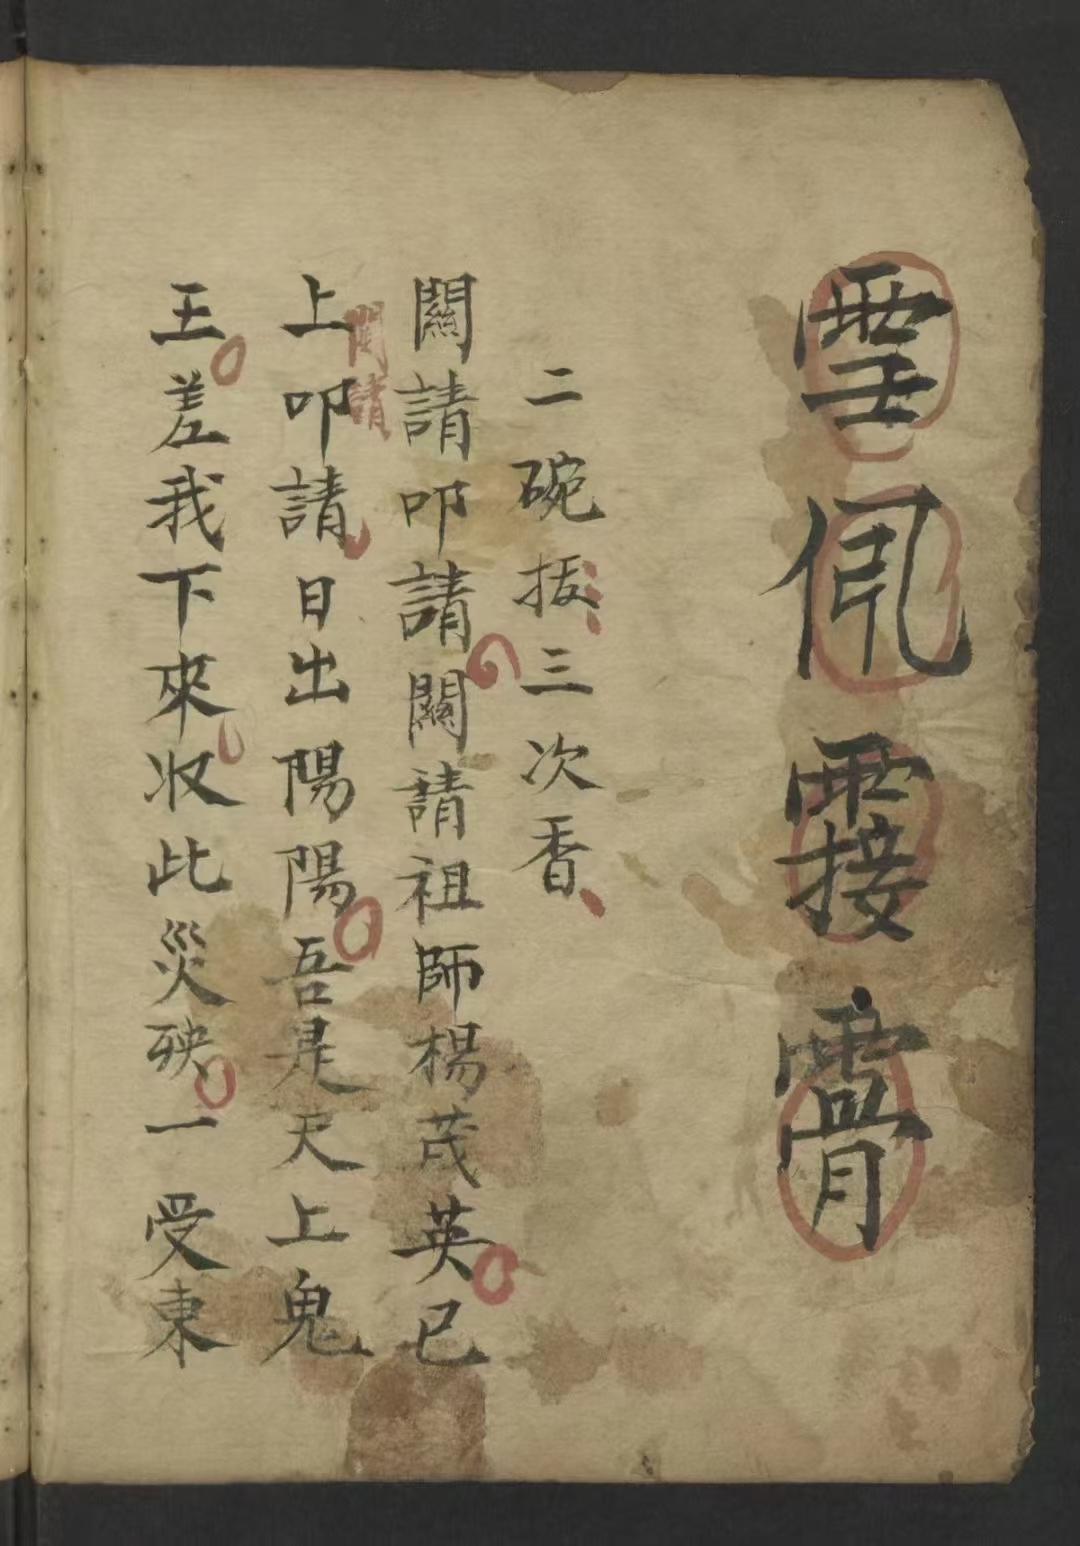 二碗拔三次香
關請叩請關請祖師楊茂英已
上叩請日出陽陽吾是天上鬼
關請
王差我下來收此災殃一受東